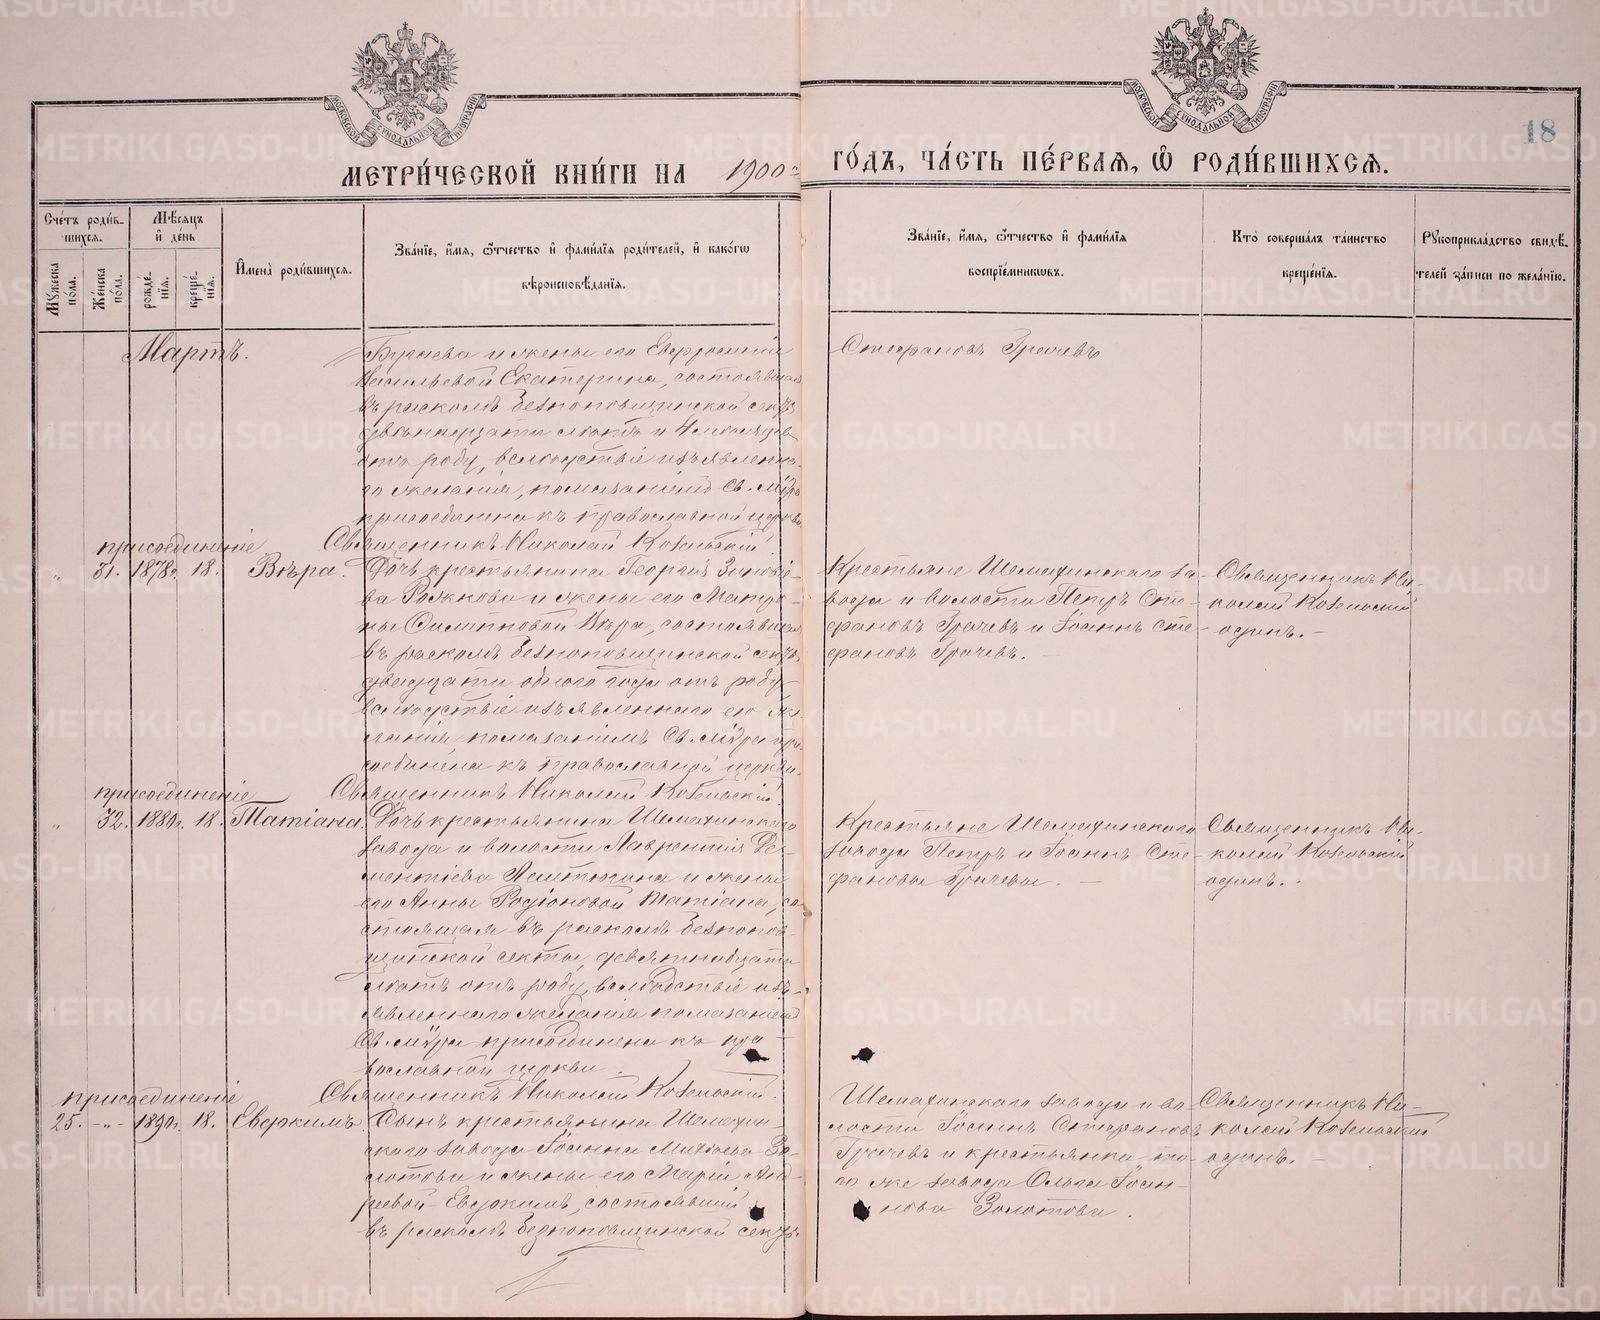 МОСКОВСКОЙ СѴНОДАЛЬНОЙ ТИПОГРАФІИ
МОСКОВСКОЙ СѴНОДАЛЬНОЙ ТИПОГРАФІИ
18
МЕТРИ́ЧЕСКОЙ КНИ́ГИ НА 1900 г.
ГО́ДЪ, ЧА́СТЬ ПЕ́РВАѦ, Ѽ РОДИ́ВШИХСѦ.
Сче́тъ роди́в-
шихсѧ.
Мꙋжеска по́ла.
Же́нска по́ла.
Мѣ́сѧцъ
и҆ де́нь
рожде́-
нїѧ.
креще́-
нїѧ.
И҆мена̀ роди́вшихсѧ.
Зва́нїе, и҆́мѧ, ѻ҆́тчество и҆ фами́лїѧ роди́телей, и҆ како́гѡ
вѣроисповѣ́данїѧ.
Зва́нїе, и҆́мѧ, ѻ҆́тчество и҆ фами́лїѧ
воспрїе́мникѡвъ.
Кто̀ соверша́лъ та́инство
креще́нїѧ.
Рꙋкоприкла́дство свидѣ́-
телей за́писи по жела́нїю.
Мартъ.
Бугаева и жены его Евфросиніи
Васильевой Екатерина, состоявшая
въ расколѣ безпоповщинской секты
лѣтъ и 4 мѣсяцев
отъ роду, вслѣдствіе изъявленна-
го желанія, помазаніемъ Св. мѵра
присоединена къ православной церкви.
Священникъ Николай Козельскій
Стефановъ Грачевъ
присоединеніе
" 31. 1878 г. 18. Вѣра.
Дочь крестьянина Георгія Зиновіе-
ва Рожкова и жены его Матро-
ны Филипповой Вѣра, состоявшая
въ расколѣ безпоповщинской секты,
двадцати одного года отъ роду
вслѣдствіе изъявленнаго ею же-
ланія, помазаніемъ Св. мѵра при-
соединена къ православной церкви.
Священникъ Николай Козельскій
Крестьяне Шемахинскаго за-
вода и волости Петръ Сте-
фановъ Грачевъ и Іоаннъ Сте-
фановъ Грачевъ.
Священникъ Ни-
колай Козельскій
одинъ. –
присоединеніе
" 32. 1880 г. 18. Татіана.
Дочь крестьянина Шемахинскаго
завода и волости Лаврентія Де-
ментіева и жены
его Анны Родіоновой Татіана, со-
стоящая въ расколѣ безпопов-
щинской секты, девятнадцати
лѣтъ отъ роду, вслѣдствіе изъ-
явленнаго желанія помазаніемъ
Св. мѵра присоединена къ пра-
вославной церкви.
Священникъ Николай Козельскій.
Крестьяне Шемахинскаго
завода Петръ и Іоаннъ Сте-
фановы Грачевы. –
Священникъ Ни-
колай Козельскій
одинъ. –
присоединеніе
25. -"- 1890 г. 18. Евдокимъ.
Сынъ крестьянина Шемахин-
скаго завода Іоанна Зо-
лотова и жены его Маріи Анд-
реевой Евдокимъ, состоявшій
въ расколѣ безпоповщинской секты
Шемахинскаго завода и во-
лости Іоаннъ Стефановъ
Грачевъ и крестьянка то-
го же завода Ольга Іоан-
нова Золотова.
Священникъ Ни-
колай Козельскій
одинъ. –
METRIKI.GASO-URAL.RU